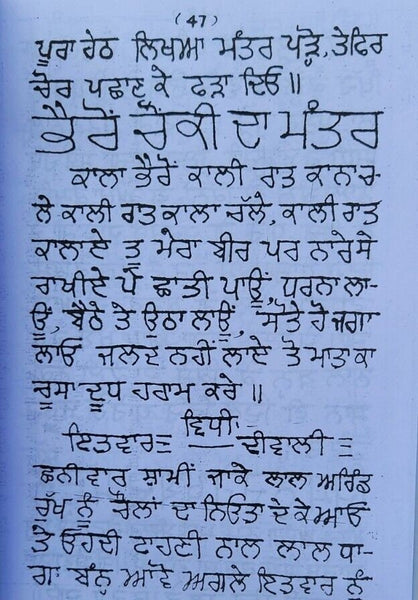 (47)
ਪੂਰਾ ਹੇਠ ਲਿਖਆ ਮੰਤਰ ਪੱੜ੍ਹੇ, ਤੇ ਫਿਰ
ਚੋਰ ਪਛਾਣ ਕੇ ਫੜਾ ਦਿਓ॥
ਭੈਰੋਂ ਚੌਂਕੀ ਦਾ ਮੰਤਰ
ਕਾਲਾ ਭੈਰੋਂ ਕਾਲੀ ਰਾਤ ਕਾਨਾ ਚ-
ਲੇ ਕਾਲੀ ਰਾਤ ਕਾਲਾ ਚੱਲੇ, ਕਾਲੀ ਰਾਤ
ਕਾਲਾਏ ਤੂ ਮੇਰਾ ਬੀਰ ਪਰ ਨਾਰੇ ਸੇ
ਰਾਖੀਏ ਪੇ ਛਾਤੀ ਪਾਉਂ, ਧੁਰਨਾ ਲਾ-
ਉਂ, ਬੈਠੇ ਤੇ ਉਠਾ ਲਾਉਂ, ਸੋਤੇ ਹੋ ਜਗਾ
ਲਾਓ ਜਲਦ ਨਹੀਂ ਲਾਏ ਤੋ ਮਾਤਾ ਕਾ
ਚੂਸਾ ਦੂਧ ਹਰਾਮ ਕਰੇ॥
ਵਿਧੀ
ਇਤਵਾਰ= — ਦੀਵਾਲੀ=
ਛਨੀਵਾਰ ਸ਼ਾਮੀਂ ਜਾਕੇ ਲਾਲ ਅਰਿੰਡ
ਰੁੱਖ ਨੂੰ ਚੌਲਾਂ ਦਾ ਨਿਓਤਾ ਦੇ ਕੇ ਆਓ
ਤੇ ਓਹਦੀ ਟਾਹਣੀ ਨਾਲ ਲਾਲ ਧਾ-
ਗਾ ਬੰਨ੍ਹ ਆਵੋ ਅਗਲੇ ਇਤਵਾਰ ਨੂੰ